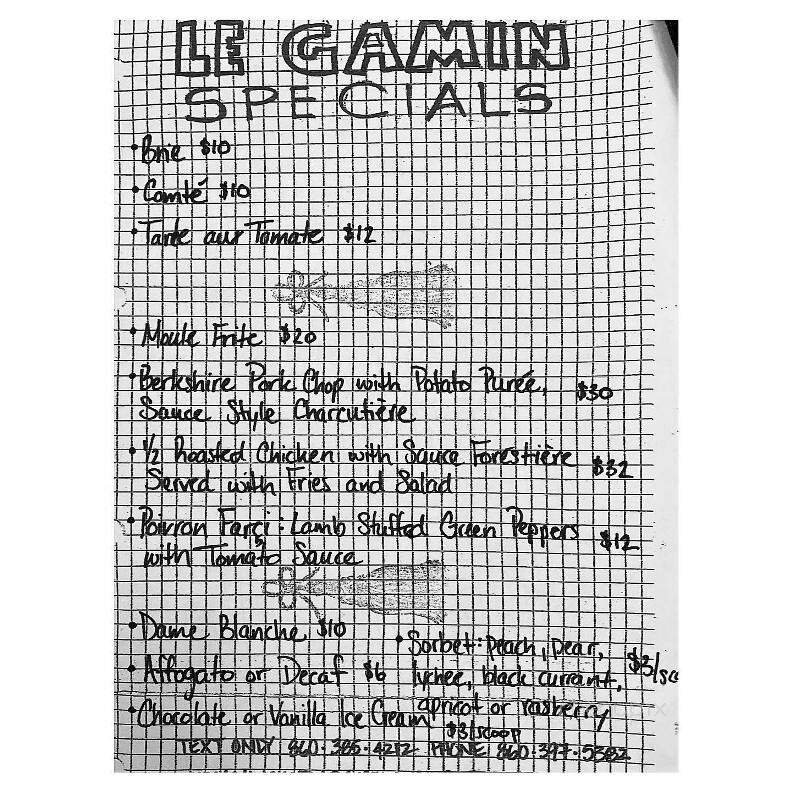 LE GAMIN
SPECIALS
• Brie $10
• Comté $10
• Tarte aux Tomate $12
• Moule Frite $20
• Berkshire Pork Chop with Potato Purée, $30
Sauce Style Charcutière
• 1/2 Roasted Chicken with Sauce Forestière $32
Served with Fries and Salad
• Poivron Farçi : Lamb Stuffed Green Peppers $12
with Tomato Sauce
• Dame Blanche $10
• Affogato or Decaf $6
• Chocolate or Vanilla Ice Cream $3/scoop
• Sorbet: peach, pear, $3/sco
lychee, black currant,
apricot or rasberry
TEXT ONLY 860·385·4212 PHONE 860·397·5382